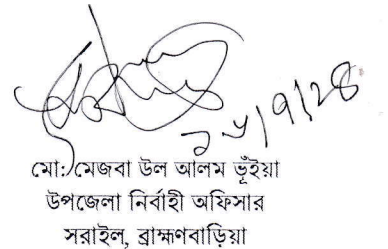 মো: মেজবা উল আলম ভূঁইয়া
উপজেলা নির্বাহী অফিসার
সরাইল, ব্রাহ্মণবাড়িয়া